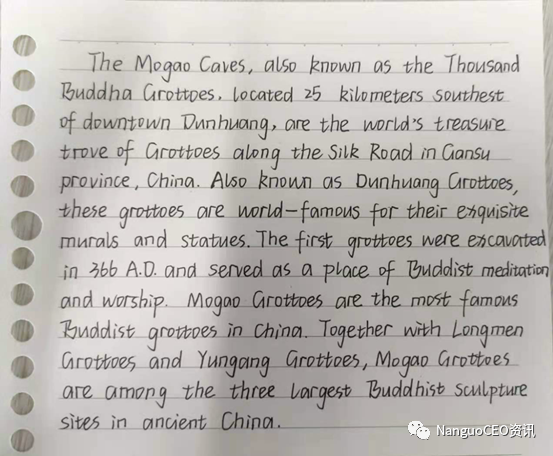 The Mogao Caves, also known as the Thousand
Buddha Grottoes, located 25 kilometers southest
of downtown Dunhuang, are the world's treasure
trove of Grottoes along the Silk Road in Gansu
province, China. Also known as Dunhuang Grottoes,
these grottoes are world-famous for their exquisite
murals and statues. The first grottoes were excavated
in 366 A.D. and served as a place of Buddist meditation
and worship. Mogao Grottoes are the most famous
Buddist grottoes in China. Together with Longmen
Grottoes and Yungang Grottoes, Mogao Grottoes
are among the three largest Buddhist sculpture
sites in ancient China.
NanguoCEO资讯